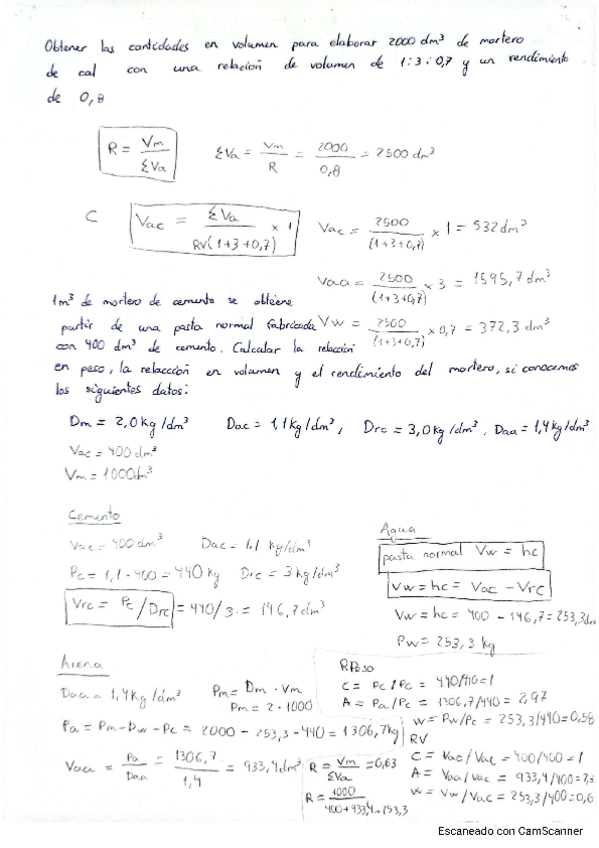 Obtener las cantidades en volumen para elaborar 2000 dm³ de mortero
de cal con una relación de volumen de 1:3:0,7 y un rendimiento
de 0,8
R = Vm / ΣVa
ΣVa = Vm / R = 2000 / 0,8 = 2500 dm³
C
Vac = ΣVa / RV(1+3+0,7) × 1
Vac = 2500 / (1+3+0,7) × 1 = 532 dm³
Vaa = 2500 / (1+3+0,7) × 3 = 1595,7 dm³
Vw = 2500 / (1+3+0,7) × 0,7 = 372,3 dm³
1m³ de mortero de cemento se obtiene
partir de una pasta normal fabricada
con 400 dm³ de cemento. Calcular la relación
en peso, la relaccion en volumen y el rendimiento del mortero, si conocemos
los siguientes datos:
Dm = 2,0 kg/dm³ Dac = 1,1 kg/dm³, Drc = 3,0 kg/dm³. Daa = 1,4 kg/dm³
Vac = 400 dm³
Vm = 1000dm³
Cemento
Vac = 400 dm³ Dac = 1,1 kg/dm³
Pc = 1,1 · 400 = 440 kg Drc = 3 kg/dm³
Vrc = Pc/Drc = 440/3 = 146,7 dm³
Agua
pasta normal Vw = hc
Vw = hc = Vac - Vrc
Vw = hc = 400 - 146,7 = 253,3 dm
Pw = 253,3 kg
Arena
Daa = 1,4 kg/dm³ Pm = Dm · Vm
Pm = 2 · 1000
Pa = Pm - Pw - Pc = 2000 - 253,3 - 440 = 1306,7 kg
Vaa = Pa / Daa = 1306,7 / 1,4 = 933,4 dm³
R = Vm / ΣVa = 0,63
R = 1000 / 400+933,4-253,3
R Peso
C = Pc/Pc = 440/440 = 1
A = Pa/Pc = 1306,7/440 = 2,97
W = Pw/Pc = 253,3/440 = 0,58
RV
C = Vac/Vac = 400/400 = 1
A = Vaa/Vac = 933,4/400 = 2,3
W = Vw/Vac = 253,3/400 = 0,6
Escaneado con CamScanner